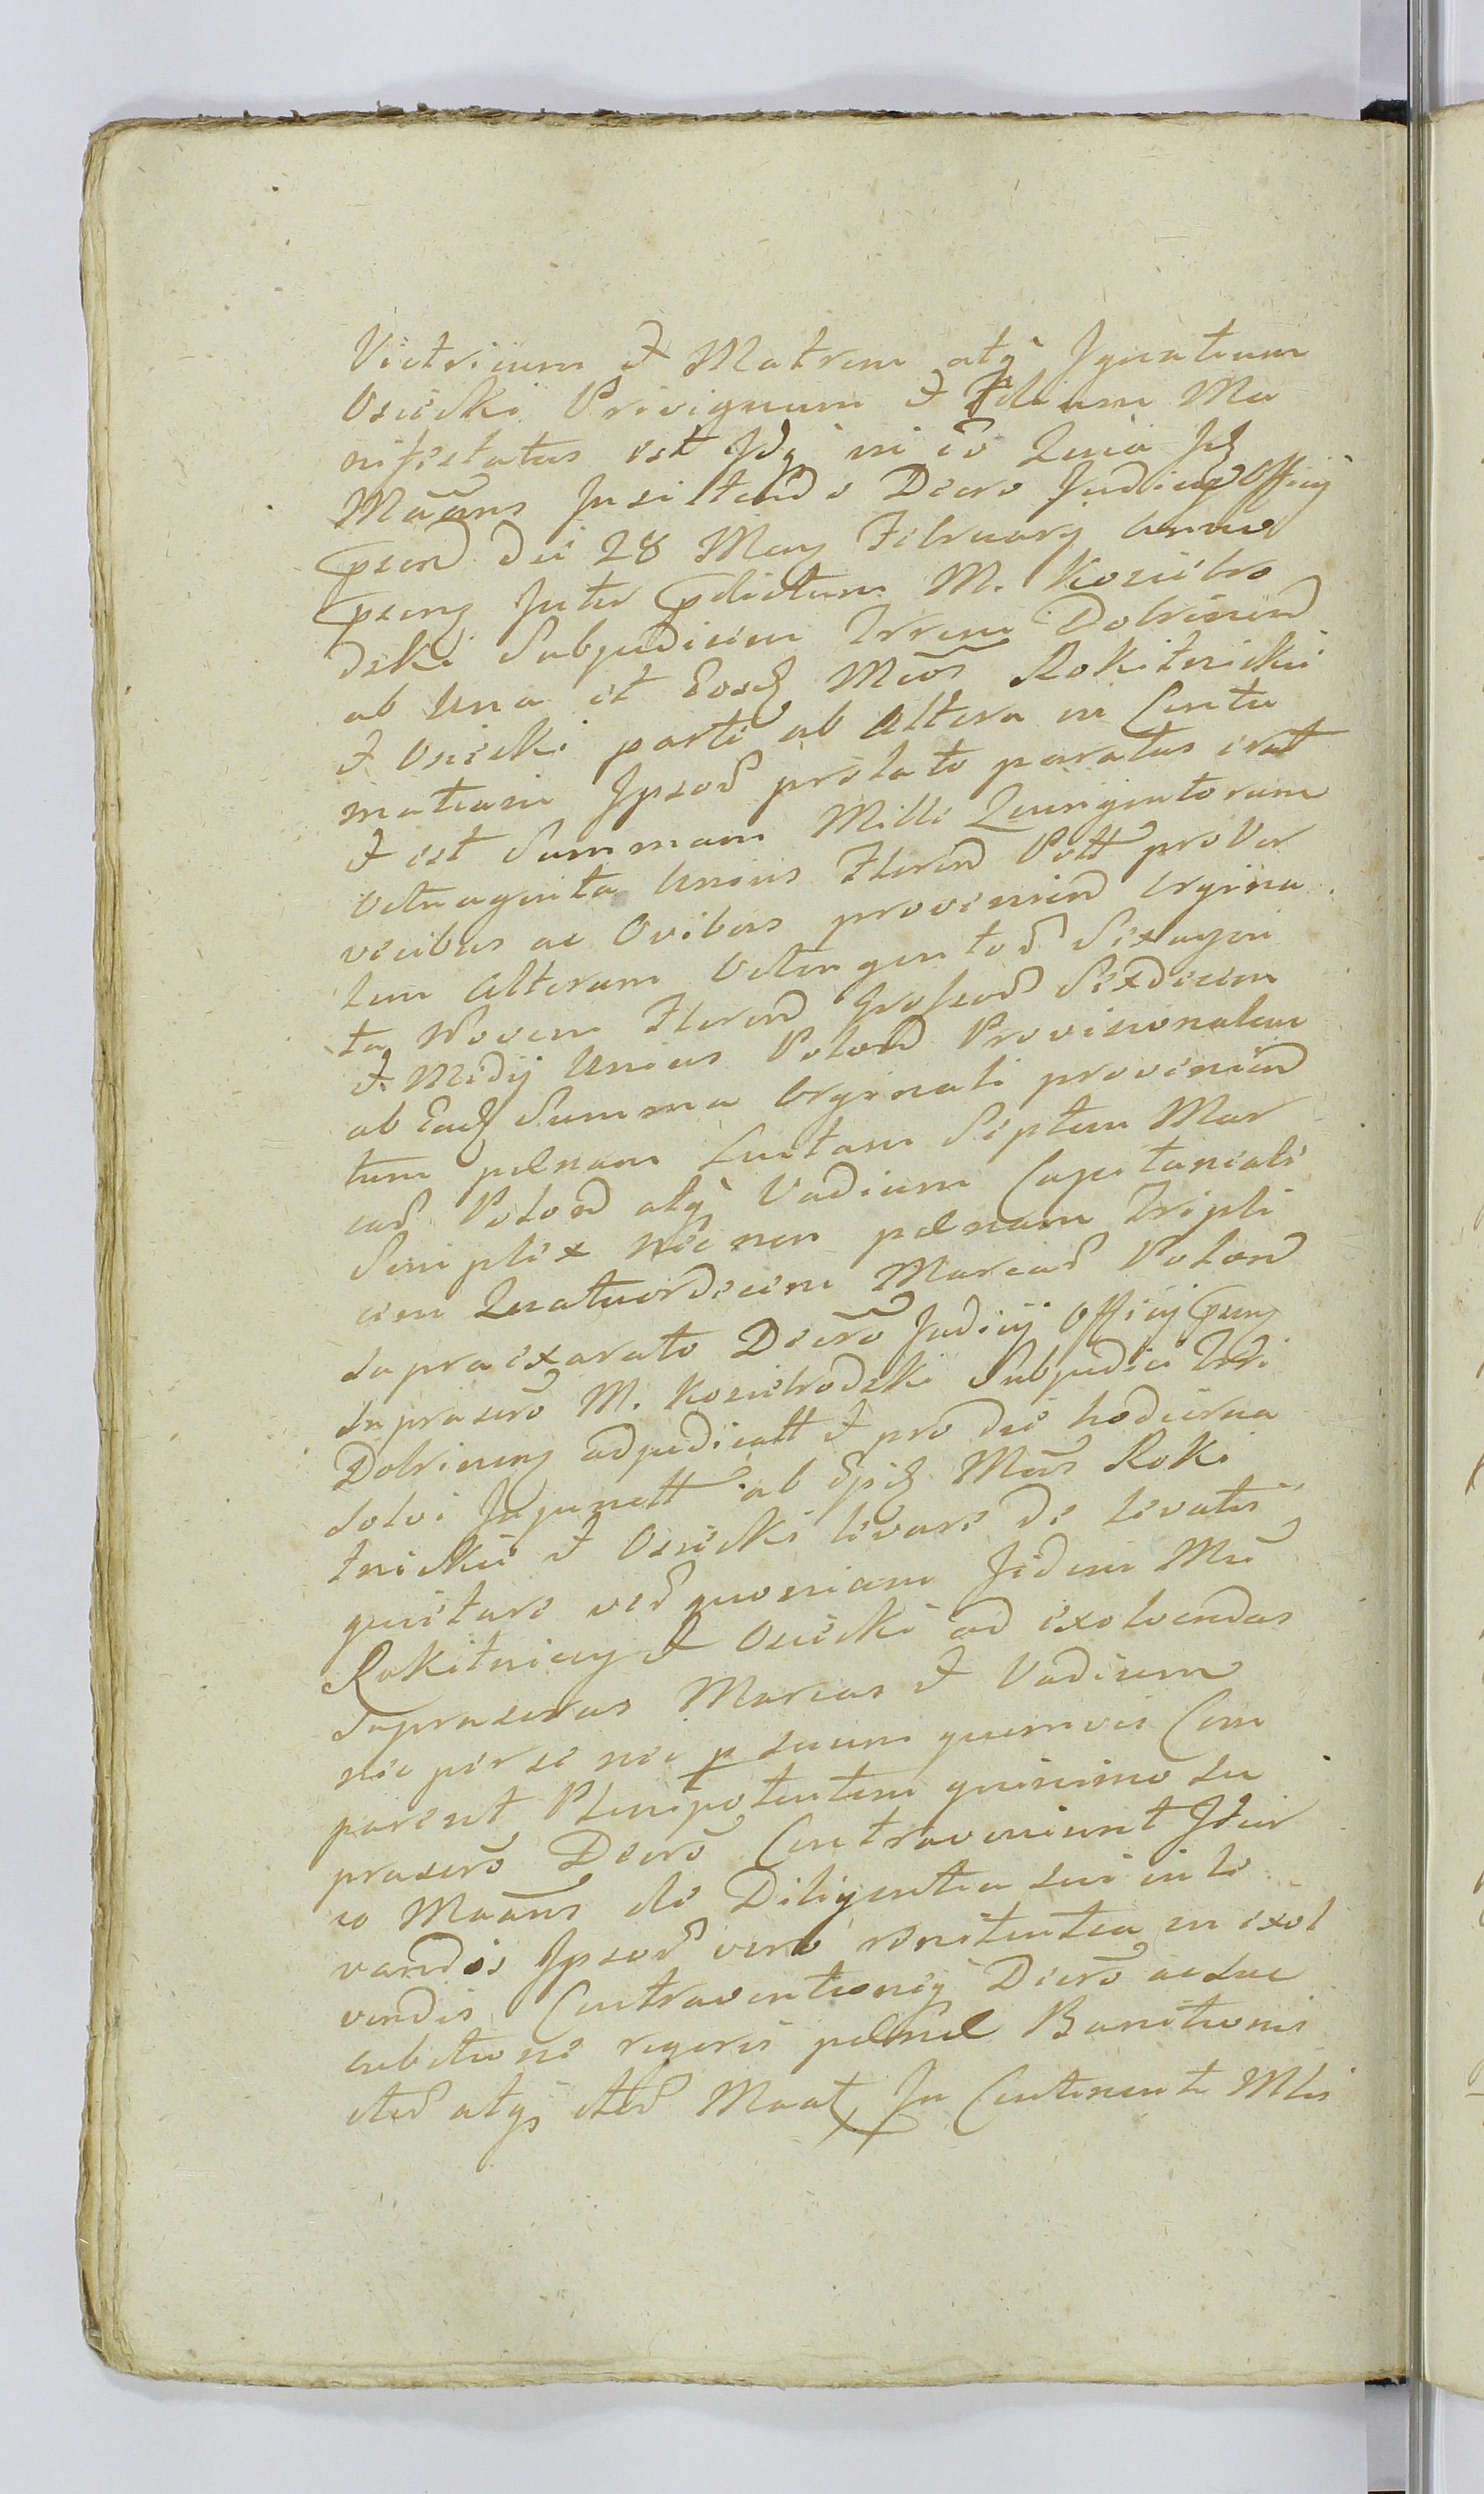 Victricum et Matrem atq Ignatium
Osiecki Privignum et Filium Ma
nifestatus est Idq in eo Quia Id
Mãans Insistendo Decro Judicij Officij
psen Die 28 Mens Februarij anno
psenq Inter pdictum M. Koziebro
dzki Subjudicem Terrem Dobrinen
ab Una et Eosd Mcos Rokitnickii
et Osiecki parte ab Altera in Contu
matiam Ipsor prolato paratus erat
et est Summam Mille Quingentorum
Octuaginta Unius Floren Poll pro Ver
vecibus ac Ovibus provenien Orgina
lem Alteram Octingentor Sexagin
ta Novem Floren Grossor Sexdecem
et Medij Unius Polon Provisionalem
ab Ead Summa Orginali provenien
tem pœnam Luctam Septem Mar
car Polon atq Vadium Capitaneale
Simplex nec non pœnam Tripli
cem Quatuordecim Marcar Polon
supra exarato Decro Judicij Officij psenq
suprascro M. Koziebrodzki Subjudici Trri
Dobrinenq adjudicatt et pro die hodierna
solvi Injunctt ab Ipsis Mcis Roki
tnickie et Osiecki levare de levatis
quietare ver quoniam Iidem Mci
Rokitnicy et Osiecki ad exolvendas
suprascras Marcas et Vadium
nec per se nec p suum quemvis Com
parent Plenipotentem quinimo su
prascro Decro Contraveniunt Ideir
co Maans de Diligentia sui in le
vandis Ipsor vero renitentia in exol
vendis Contraventioneq Decro ac suc
cubitione rigoris pœnæ Banitionis
iter atq iter Maat In Continenti Mlis